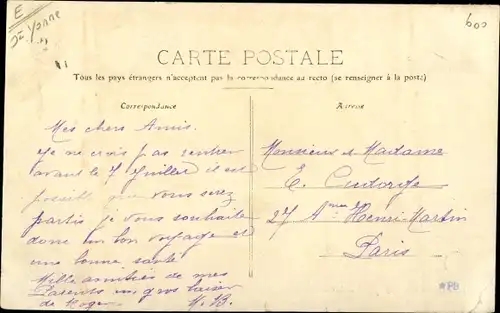 E
Yonne
600
CARTE POSTALE
Tous les pays étrangers n'acceptent pas la correspondance au recto (se renseigner à la poste)
Correspondance
Adresse
Mes chers Amis.
Je ne crois pas rentrer
avant le 7 Juillet il est
possible que vous serez
partis je vous souhaite
donc un bon voyage et
une bonne santé
Mille amitiés de mes
Parents un gros baiser
de Roger M.B.
Monsieur et Madame
E.
27 Henri-Martin
Paris
PB